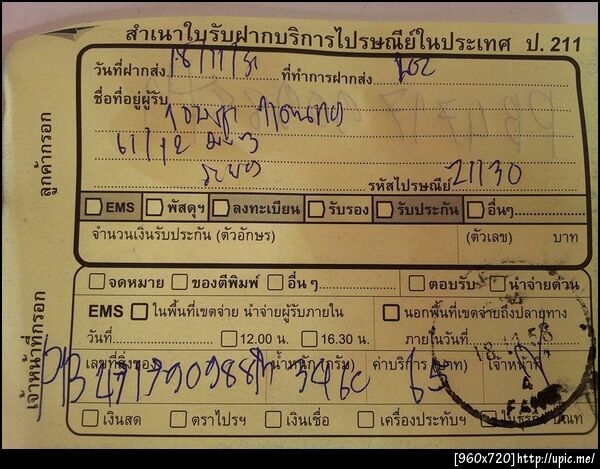 สำเนาใบรับฝากบริการไปรษณีย์ในประเทศ ป. 211
วันที่ฝากส่ง 18/11/ ที่ทำการฝากส่ง
ชื่อที่อยู่ผู้รับ
61/12
ระยอง
รหัสไปรษณีย์ 21130
ลูกค้ากรอก
EMS พัสดุฯ ลงทะเบียน รับรอง รับประกัน อื่นๆ
จำนวนเงินรับประกัน (ตัวอักษร) (ตัวเลข) บาท
เจ้าหน้าที่กรอก
จดหมาย ของตีพิมพ์ อื่น ๆ ตอบรับ นำจ่ายด่วน
EMS ในพื้นที่เขตจ่าย นำจ่ายผู้รับภายใน นอกพื้นที่เขตจ่ายถึงปลายทาง
วันที่ 12.00 น. 16.30 น. ภายในวันที่
เลขที่สิ่งของ น้ำหนัก (กรัม) ค่าบริการ (บาท) เจ้าหน้าที่
3460 65
เงินสด ตราไปรฯ เงินเชื่อ เครื่องประทับฯ
[960x720]http://upic.me/